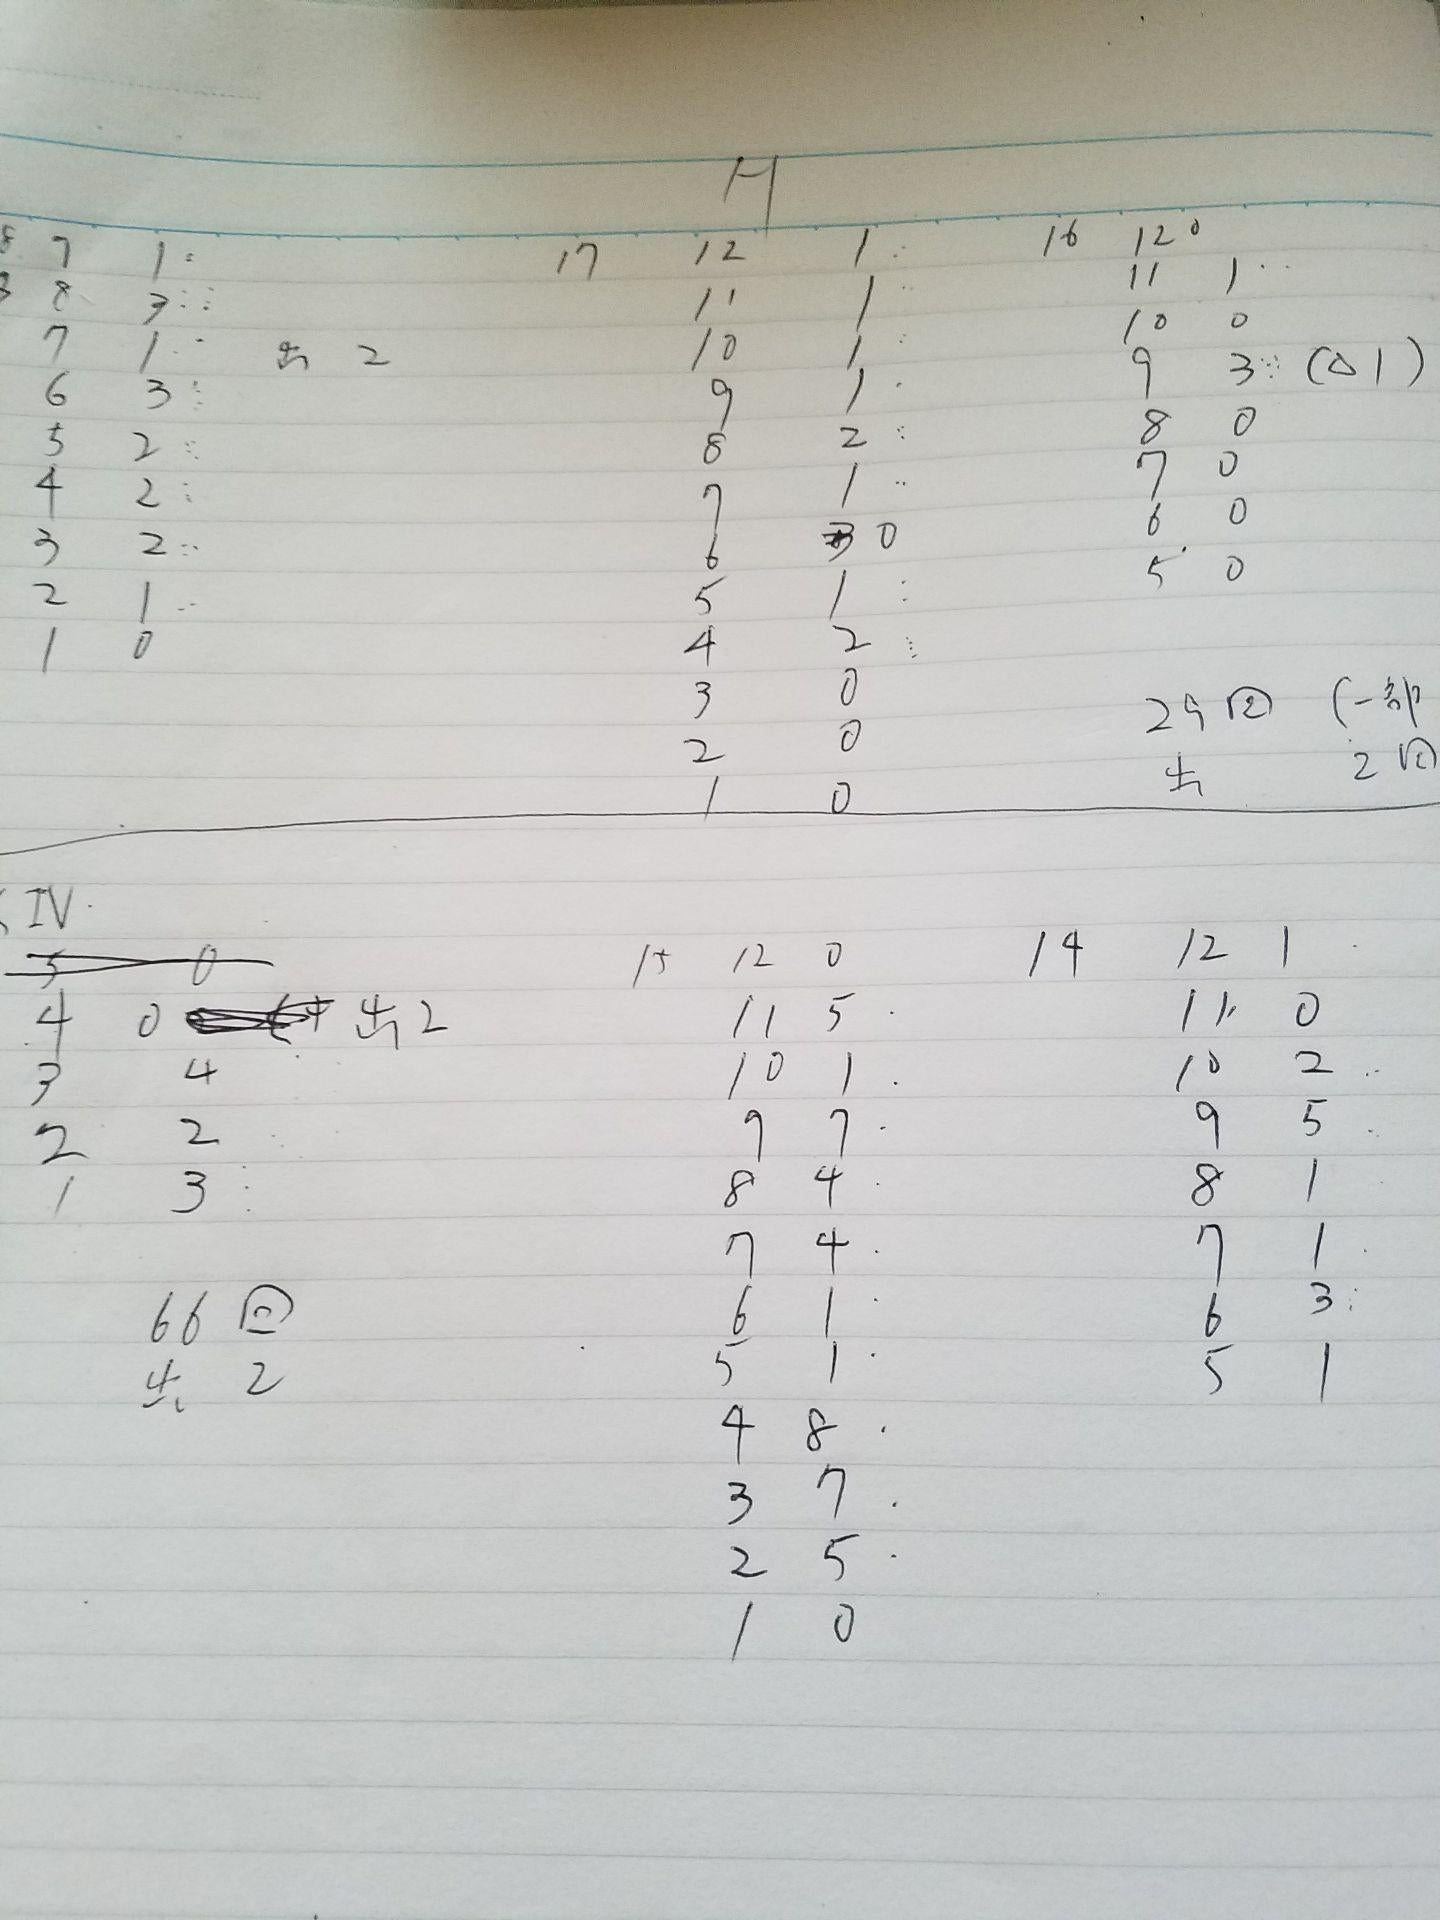 H
7 1 17 12 1 16 12 0
8 3 11 1 11 1
7 1 出 2 10 1 10 0
6 3 9 1 9 3 (△1)
5 2 8 2 8 0
4 2 7 1 7 0
3 2 6 0 6 0
2 1 5 1 5 0
1 0 4 2
3 0 29回 (一部
2 0 出 2回
1 0
IV
5 0 15 12 0 14 12 1
4 0 出2 11 5 11 0
3 4 10 1 10 2
2 2 9 7 9 5
1 3 8 4 8 1
7 4 7 1
66回 6 1 6 3
出 2 5 1 5 1
4 8
3 7
2 5
1 0